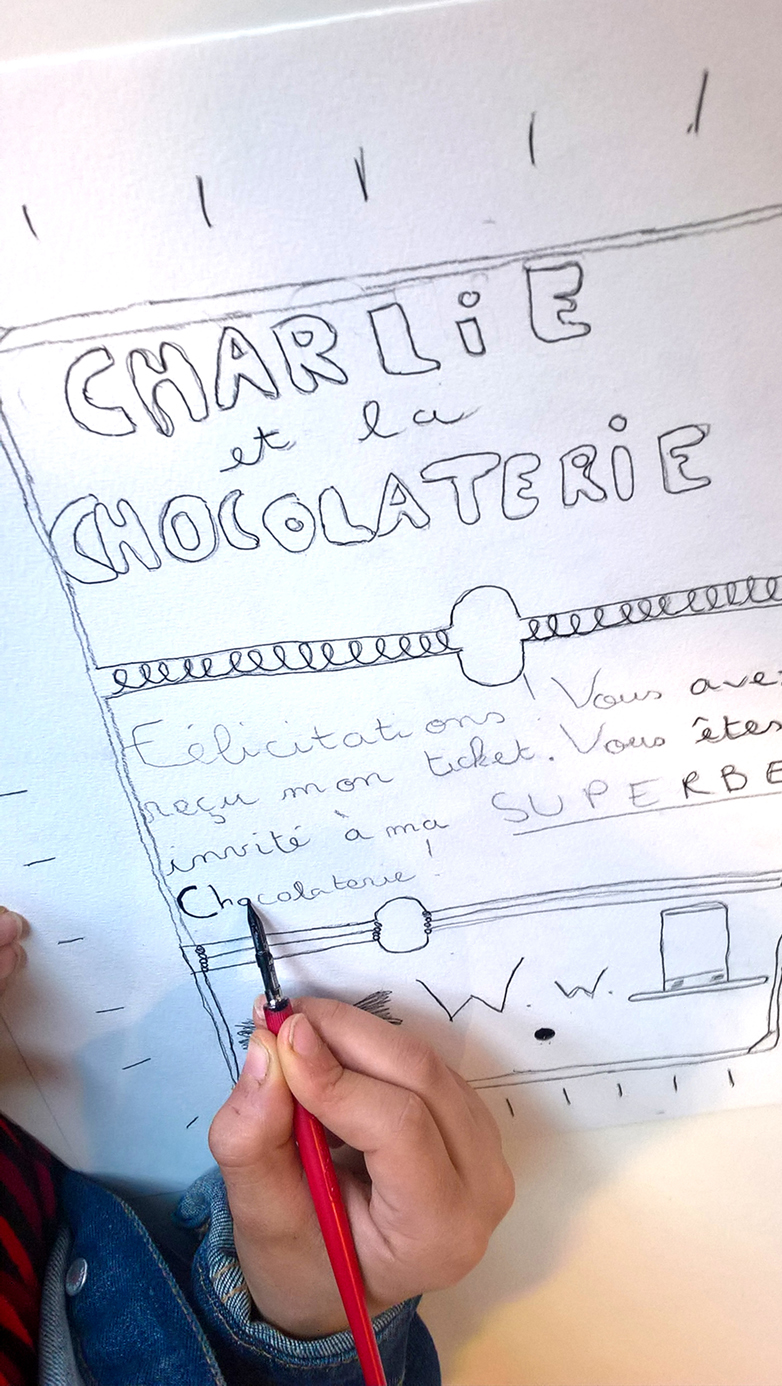 CHARLiE
et la
CHOCOLATERiE
Félicitations ! Vous avez
reçu mon ticket. Vous êtes
invité à ma SUPERBE
Chocolaterie !
W. w.